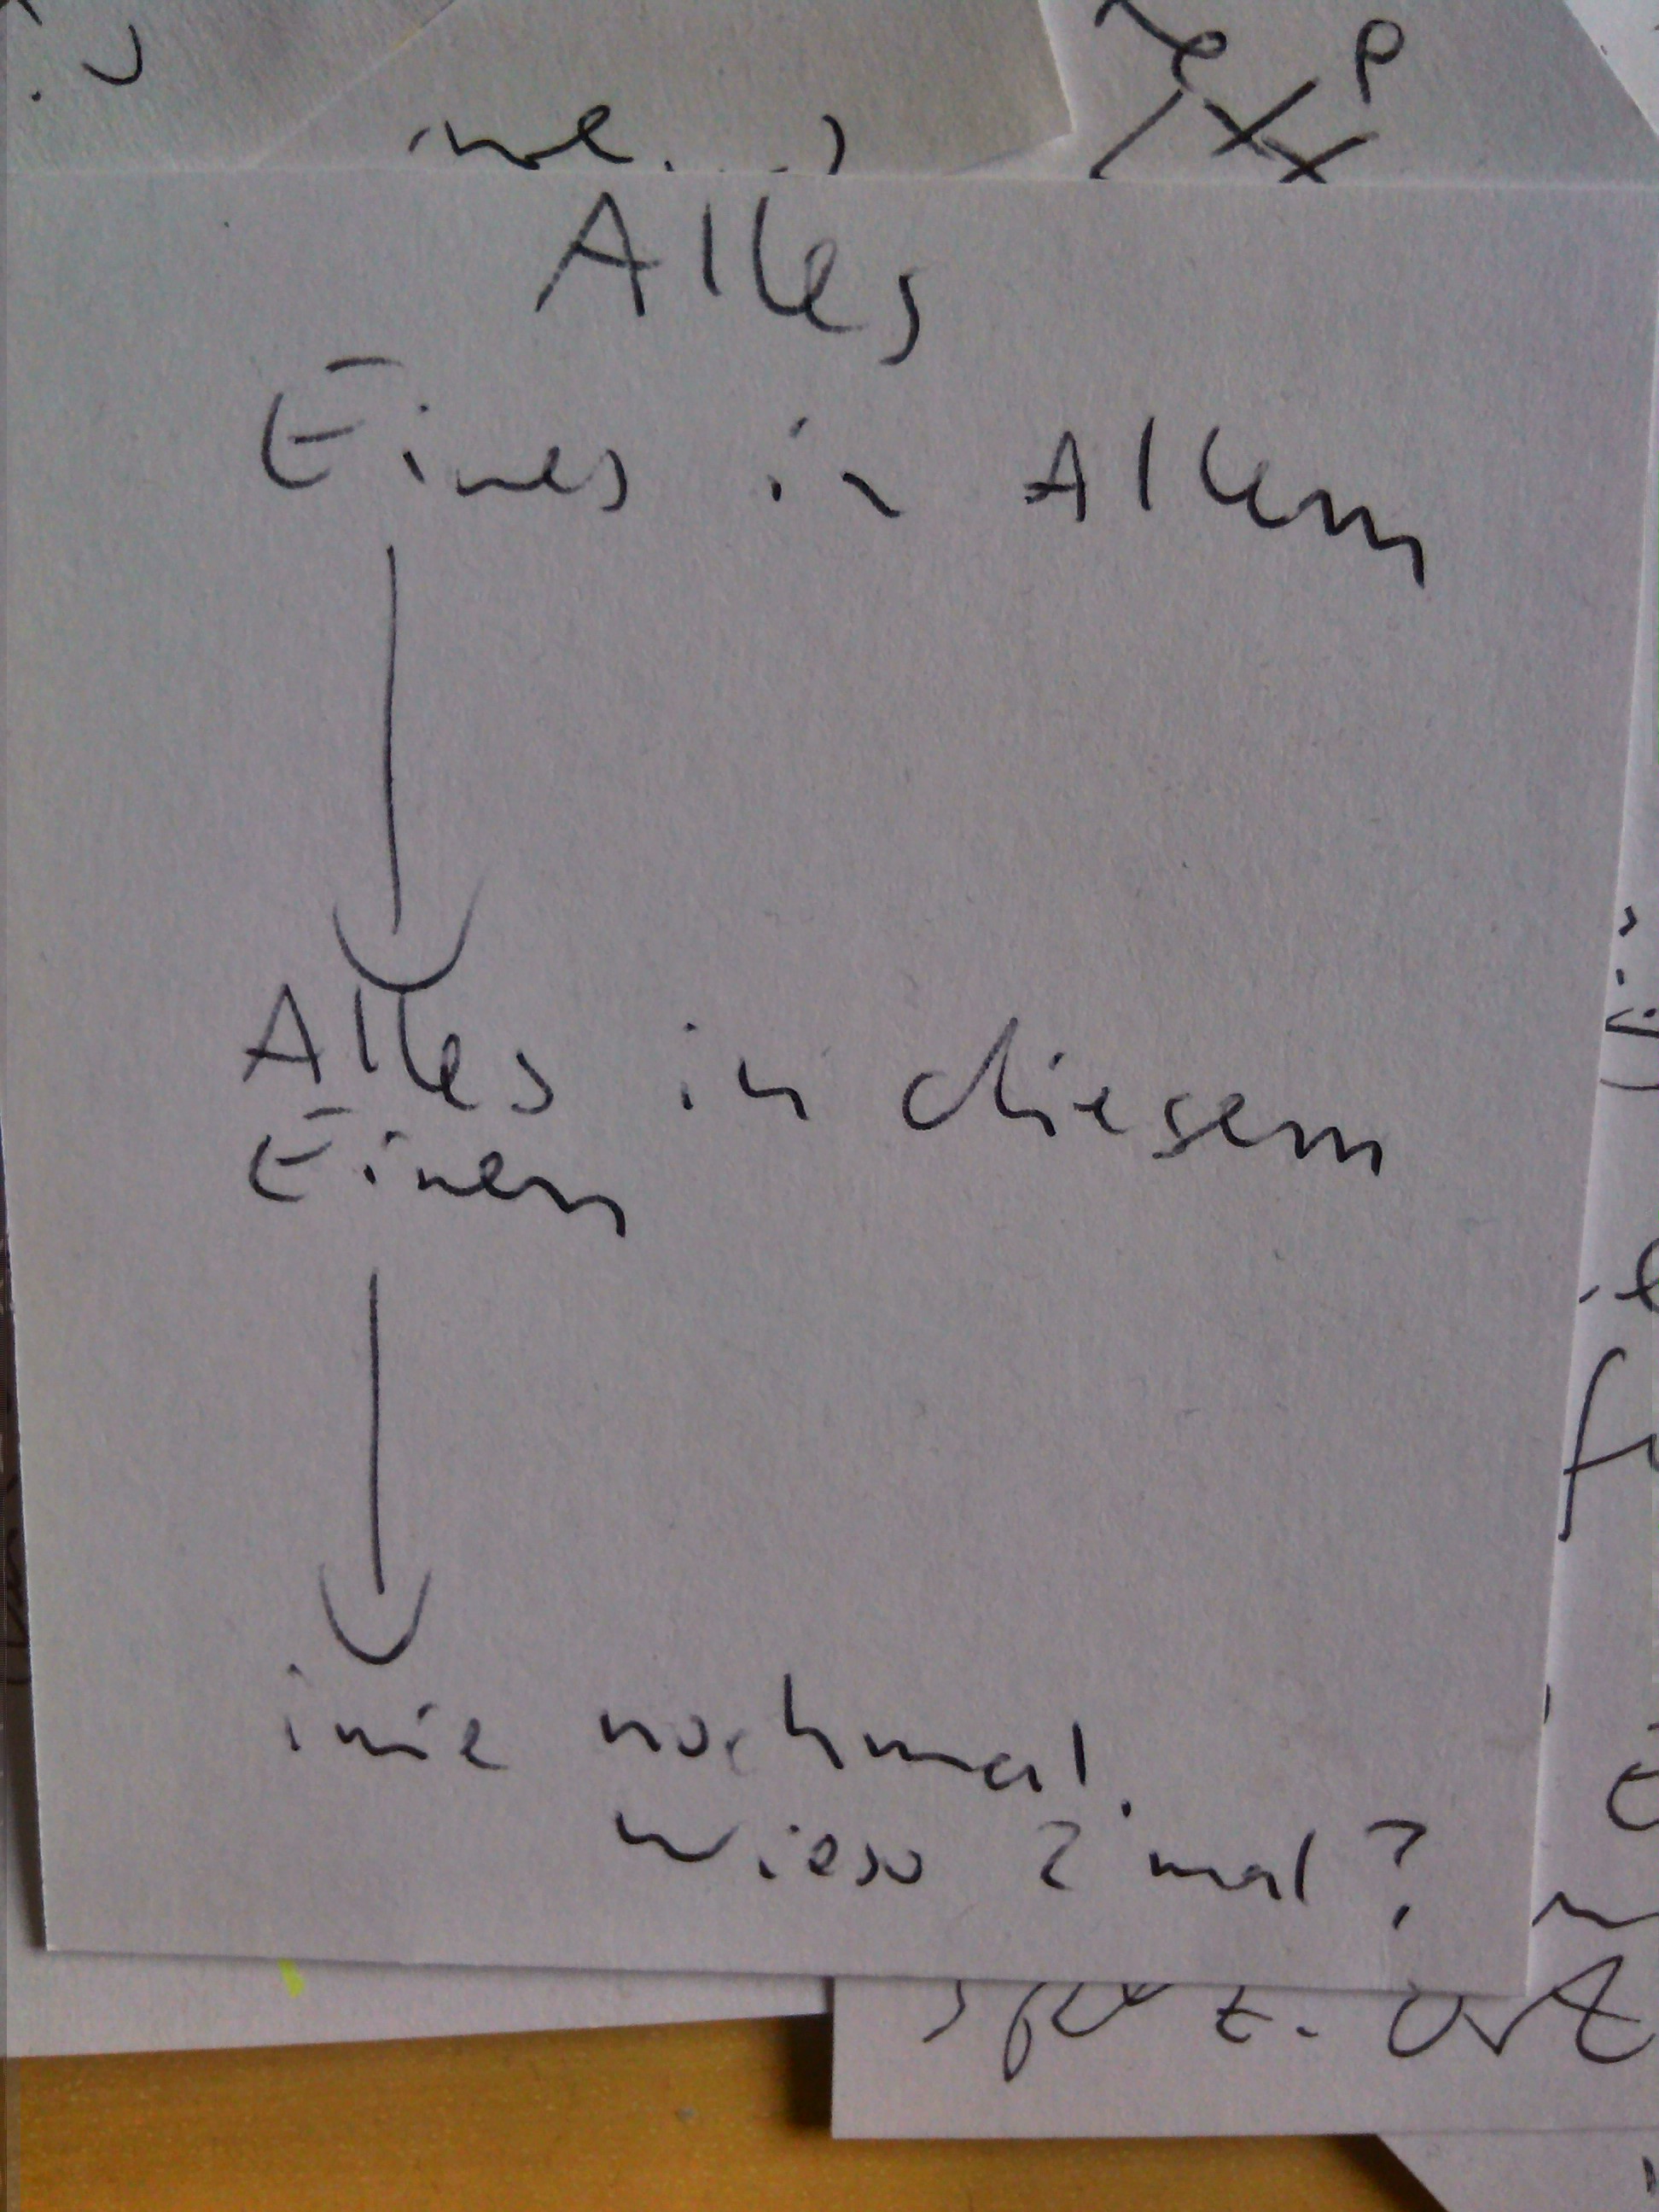 Alles
Eines in Allem
Alles in diesem
Einem
nochmal.
wieso 2 mal?
spez.